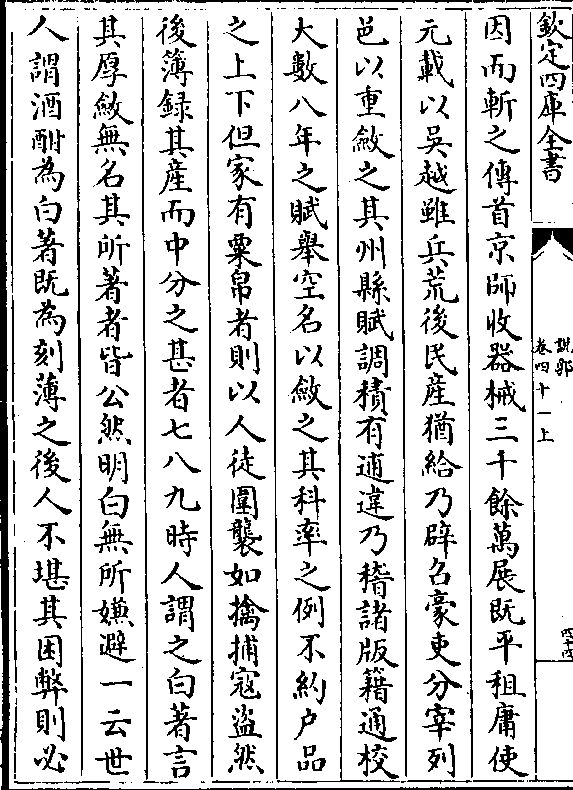 欽定四庫全書
說郛
卷四十一上
四十四
因而斬之傳首京師收器械三十餘萬展既平租庸使
元載以吳越雖兵荒後民産猶給乃辟召豪吏分宰列
邑以重斂之其州縣賦調積有逋違乃稽諸版籍通校
大數八年之賦舉空名以斂之其科率之例不約户品
之上下但家有粟帛者則以人徒圍襲如擒捕寇盜然
後簿録其産而中分之甚者七八九時人謂之白著言
其厚斂無名其所著者皆公然明白無所嫌避一云世
人謂酒酣為白著既為刻薄之後人不堪其困弊則必